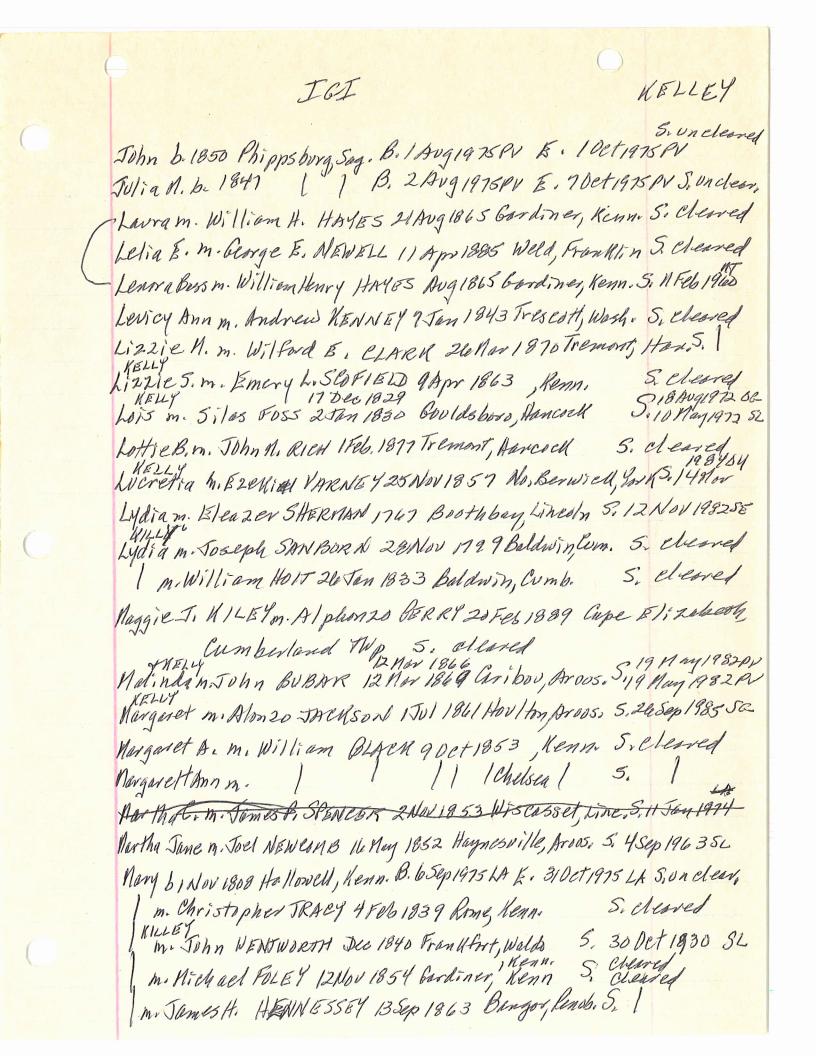 IGI KELLEY
S. uncleared
John b. 1850 Phippsburg, Sag. B. 1 Aug 1975 PV E. 1 Oct 1975 PV
Julia M. b. 1847 | | B. 2 Aug 1975 PV E. 7 Oct 1975 PV S. unclear.
Laura m. William H. HAYES 21 Aug 1865 Gardiner, Kenn. S. cleared
Lelia E. m. George E. NEWELL 11 Apr 1885 Weld, Franklin S. cleared
Lenora Bess m. William Henry HAYES Aug 1865 Gardiner, Kenn. S. 11 Feb 1960
Levicy Ann m. Andrew KENNEY 7 Jan 1843 Trescott, Wash. S. cleared
Lizzie M. m. Wilford E. CLARK 26 Mar 1870 Tremont, Han. S. |
KELLY
Lizzie S. m. Emery L. SCOFIELD 9 Apr 1863 , Kenn. S. cleared
KELLY 17 Dec 1829 18 Aug 1972
Lois m. Silas FOSS 2 Jan 1830 Gouldsboro, Hancock S. 10 May 1972 SL
Lottie B. m. John M. RICH 1 Feb. 1877 Tremont, Hancock S. cleared
KELLY 1984
Lucretia m. Ezekiel VARNEY 25 Nov 1857 No. Berwick, York S. 14 Mar
Lydia m. Eleazer SHERMAN 1767 Boothbay, Lincoln S. 12 Nov 1982 SE
KILLY
Lydia m. Joseph SANBORN 28 Nov 1799 Baldwin, Cum. S. cleared
| m. William HOIT 26 Jan 1833 Baldwin, Cumb. S. cleared
Maggie J. KILEY m. Alphonzo BERRY 20 Feb 1889 Cape Elizabeth,
Cumberland Twp S. cleared
+KELLY 12 Mar 1866 19 May 1982 PV
Malinda m. John BUBAR 12 Mar 1869 Caribou, Aroos. S. 19 May 1982 PV
KELLY
Margaret m. Alonzo JACKSON 1 Jul 1861 Houlton, Aroos. S. 26 Sep 1985 SG
Margaret A. m. William BLACK 9 Oct 1853 , Kenn. S. cleared
Margarett Ann m. | | | | | Chelsea | S. |
Martha C. m. James P. SPENCER 2 Nov 1853 Wiscasset, Linc. S. 11 Jan 1974 LA
Martha Jane m. Joel NEWCOMB 16 May 1852 Haynesville, Aroos. S. 4 Sep 1963 SL
Mary b. 1 Nov 1808 Hallowell, Kenn. B. 6 Sep 1975 LA E. 31 Oct 1975 LA S. unclear.
| m. Christopher TRACY 4 Feb 1839 Rome, Kenn. S. cleared
KILLEY
m. John WENTWORTH Dec 1840 Frankfort, Waldo S. 30 Oct 1930 SL
, Kenn. cleared
| m. Michael FOLEY 12 Nov 1854 Gardiner, Kenn S. cleared
| m. James H. HENNESSEY 13 Sep 1863 Bangor, Penob. S. |